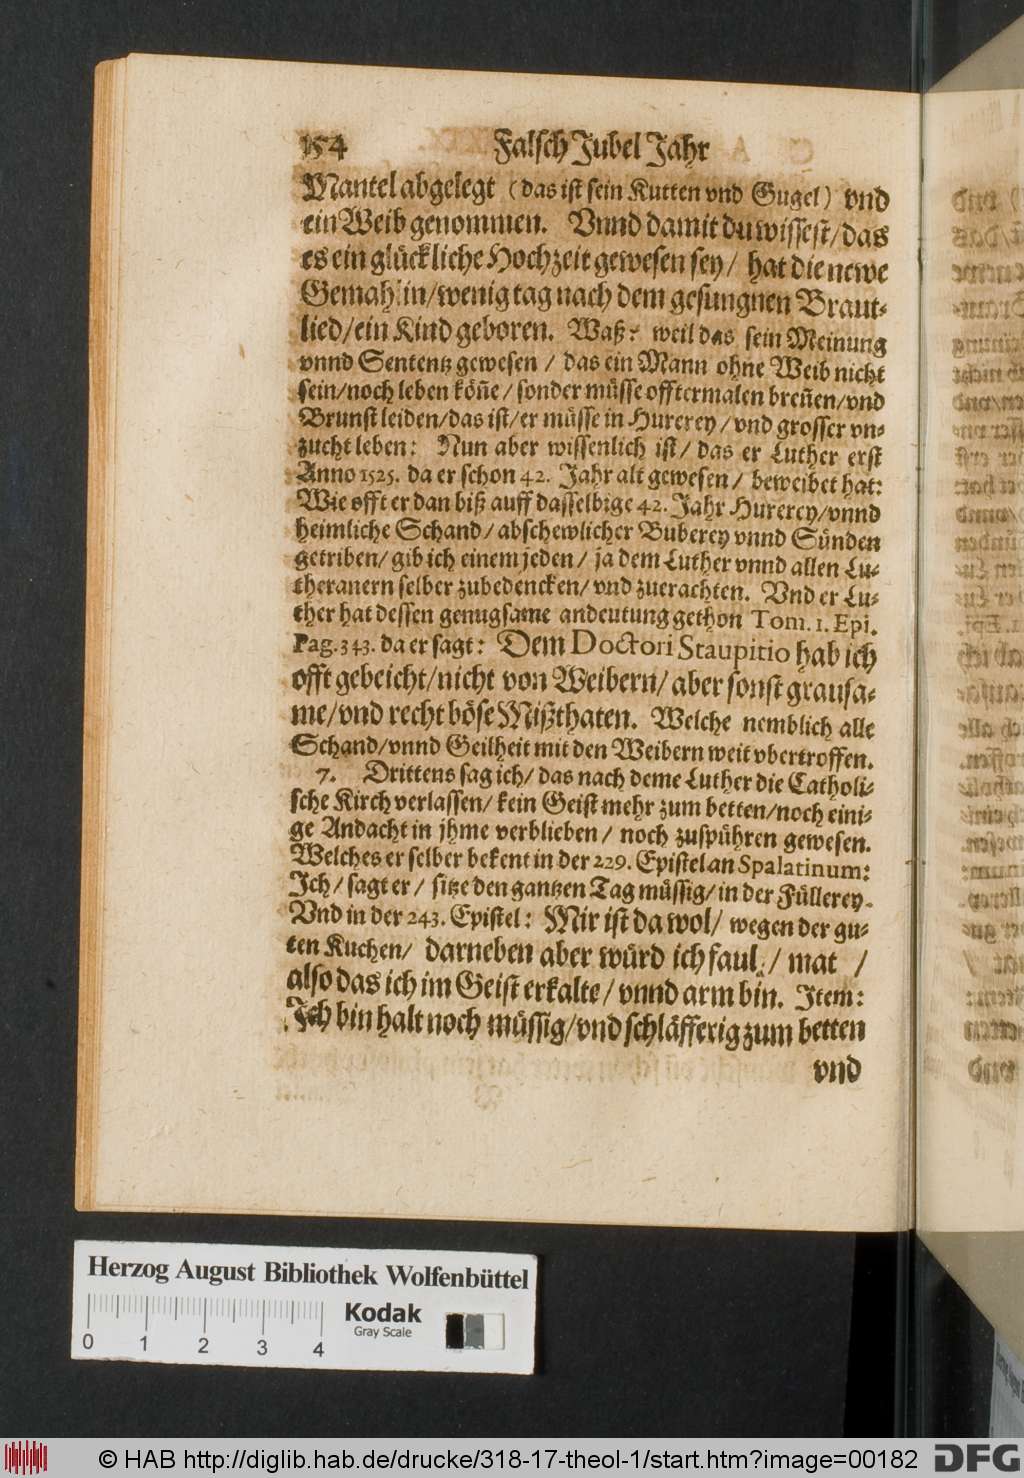 154 Falsch Jubel Jahr
Mantel abgelegt (das ist sein Kutten vnd Gugel) vnd
ein Weib genommen. Vnnd damit du wissest/das
es ein glückliche Hochzeit gewesen sey/ hat die newe
Gemahlin/wenig tag nach dem gesungnen Braut-
lied/ein Kind geboren. Waß? weil das sein Meinung
vnnd Sententz gewesen/ das ein Mann ohne Weib nicht
sein/noch leben köñe/ sonder müsse offtermalen breñen/vnd
Brunst leiden/das ist/er müsse in Hurerey/vnd grosser vn-
zucht leben: Nun aber wissenlich ist/ das er Luther erst
Anno 1525. da er schon 42. Jahr alt gewesen/ beweibet hat:
Wie offt er dan biß auff dasselbige 42. Jahr Hurerey/vnnd
heimliche Schand/abschewlicher Buberey vnnd Sünden
getriben/gib ich einem jeden/ ja dem Luther vnnd allen Lu-
theranern selber zubedencken/vnd zuerachten. Vnd er Lu-
ther hat dessen genugsame andeutung gethon Tom. 1. Epi.
Pag. 343. da er sagt: Dem Doctori Staupitio hab ich
offt gebeicht/nicht von Weibern/aber sonst grausa-
me/vnd recht böse Mißthaten. Welche nemblich alle
Schand/vnnd Geilheit mit den Weibern weit vbertroffen.
7. Drittens sag ich/das nach deme Luther die Catholi-
sche Kirch verlassen/ kein Geist mehr zum betten/noch eini-
ge Andacht in jhme verblieben/ noch zuspühren gewesen.
Welches er selber bekent in der 229. Epistel an Spalatinum:
Ich/sagt er/ sitze den gantzen Tag müssig/in der Füllerey.
Vnd in der 243. Epistel: Mir ist da wol/ wegen der gu-
ten Kuchen/ darneben aber würd ich faul/ mat /
also das ich im Geist erkalte/vnnd arm bin. Item:
Ich bin halt noch müssig/vnd schläfferig zum betten
vnd
Herzog August Bibliothek Wolfenbüttel
Kodak
Gray Scale
0 1 2 3 4
© HAB http://diglib.hab.de/drucke/318-17-theol-1/start.htm?image=00182 DFG